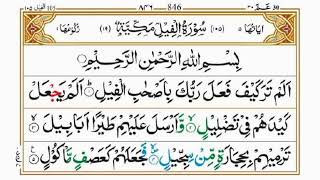 عم ٣٠ 846 ٨٤٦ الفيل ١٠٥
اٰيَاتُهَا ٥ (١٠٥) سُوْرَةُ الْفِيْلِ مَكِّيَّةٌ (١٩) رُكُوْعُهَا ١
بِسْمِ اللّٰهِ الرَّحْمٰنِ الرَّحِيْمِ
اَلَمْ تَرَ كَيْفَ فَعَلَ رَبُّكَ بِاَصْحٰبِ الْفِيْلِ ۝١ اَلَمْ يَجْعَلْ
كَيْدَهُمْ فِيْ تَضْلِيْلٍ ۝٢ وَّاَرْسَلَ عَلَيْهِمْ طَيْرًا اَبَابِيْلَ ۝٣
تَرْمِيْهِمْ بِحِجَارَةٍ مِّنْ سِجِّيْلٍ ۝٤ فَجَعَلَهُمْ كَعَصْفٍ مَّاْكُوْلٍ ۝٥